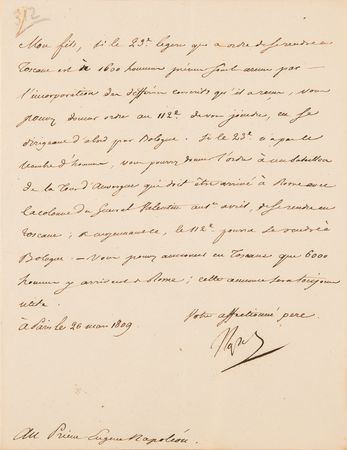 312
Mon fils, si le 23e legere qui a ordre de se rendre en
Toscane est à 1600 hommes présens sous les armes par
l'incorporation des différens conscrits qu'il a reçus, vous
pouvez donner ordre au 112e de vous joindre, en se
dirigeant d'abord par Bologne. Si le 23e n'a pas le
nombre d'hommes, vous pourrez donner l'ordre à un bataillon
de la Tour d'Auvergne qui doit être arrivé à Rome avec
la colonne du General Valentin au 1er avril, de se rendre en
Toscane; et moyennant ce, le 112e pourra se rendre à
Bologne. — Vous pouvez annoncer en Toscane que 6000
hommes y arrivent de Rome; cette annonce sera toujours
utile.
à Paris le 26 mars 1809.
Votre affectionné pere.
Nap
Au Prince Eugene Napoléon.